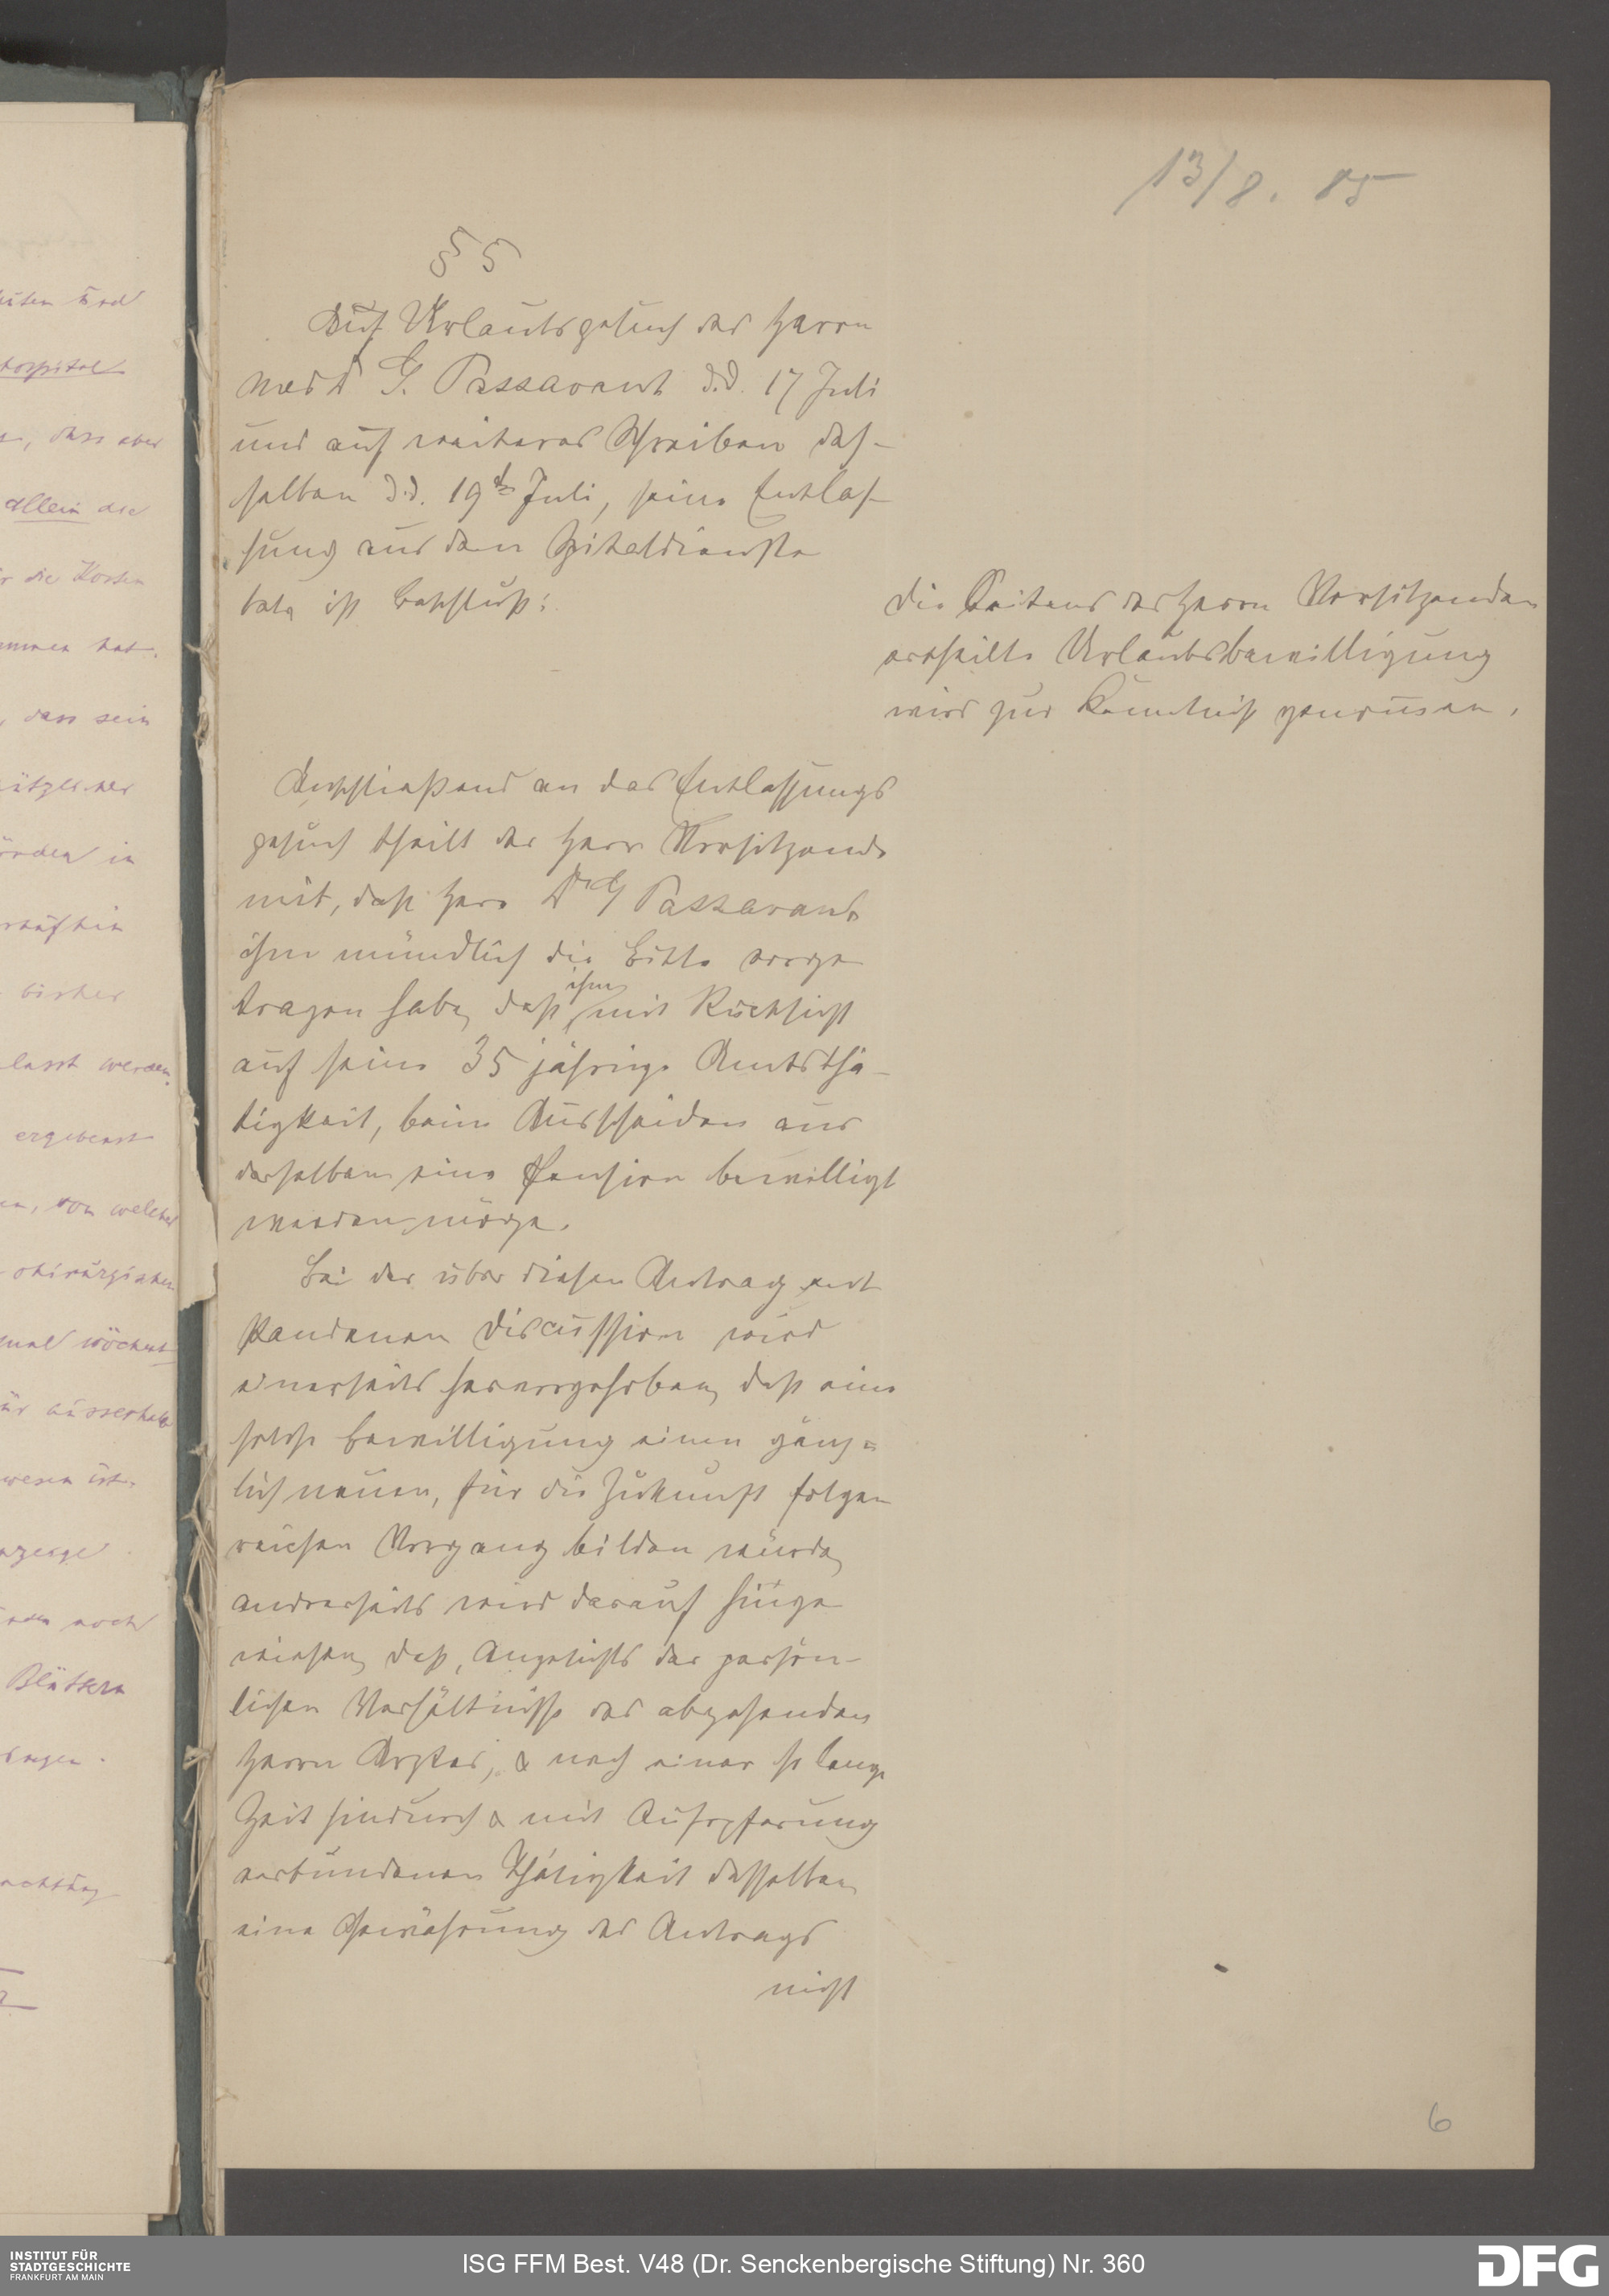 13/8. 85
§ 5
Auf Urlaubsgesuch des Herrn
med Dr G. Passavant d.d. 17 Juli
und auf weiteres Schreiben des-
selben d.d. 19t Juli, seine Entlas-
sung aus dem Spitaldienste
betr. ist Beschluß:
die Seitens des Herrn Vorsitzenden
ertheilte Urlaubsbewilligung
wird zur Kenntniß genommen.
Anschließend an das Entlassungs
gesuch theilt der Herr Vorsitzende
mit, daß Herr Dr G Passavant
ihm mündlich die Bitte vorge
tragen habe, daß ihm mit Rücksicht
auf seine 35 jährige Amtsthä-
tigkeit, beim Ausscheiden aus
derselben eine Pension bewilligt
werden möge.
Bei der über diesen Antrag ent
standenen Discussion wird
einerseits hervorgehoben, daß eine
solche Bewilligung einen gänz=
lich neuen, für die Zukunft folgen
reichen Vorgang bilden würde,
andrerseits wird darauf hinge
wiesen, daß, Angesichts der persön-
lichen Verhältnisse des abgehenden
Herrn Arztes, & nach einer so lange
Zeit hindurch & mit Aufopferung
verbundenen Thätigkeit desselben,
eine Gewährung des Antrags
nicht
6
hospital
, dass aber
allein die
die Kosten
hat.
, dass sein
in
bisher
lasst werden.
ergebenst
, von welcher
chirurgischen
mal wöchent
ausserhalb
wesen ist.
noch
Blättern
INSTITUT FÜR
STADTGESCHICHTE
FRANKFURT AM MAIN
ISG FFM Best. V48 (Dr. Senckenbergische Stiftung) Nr. 360
DFG